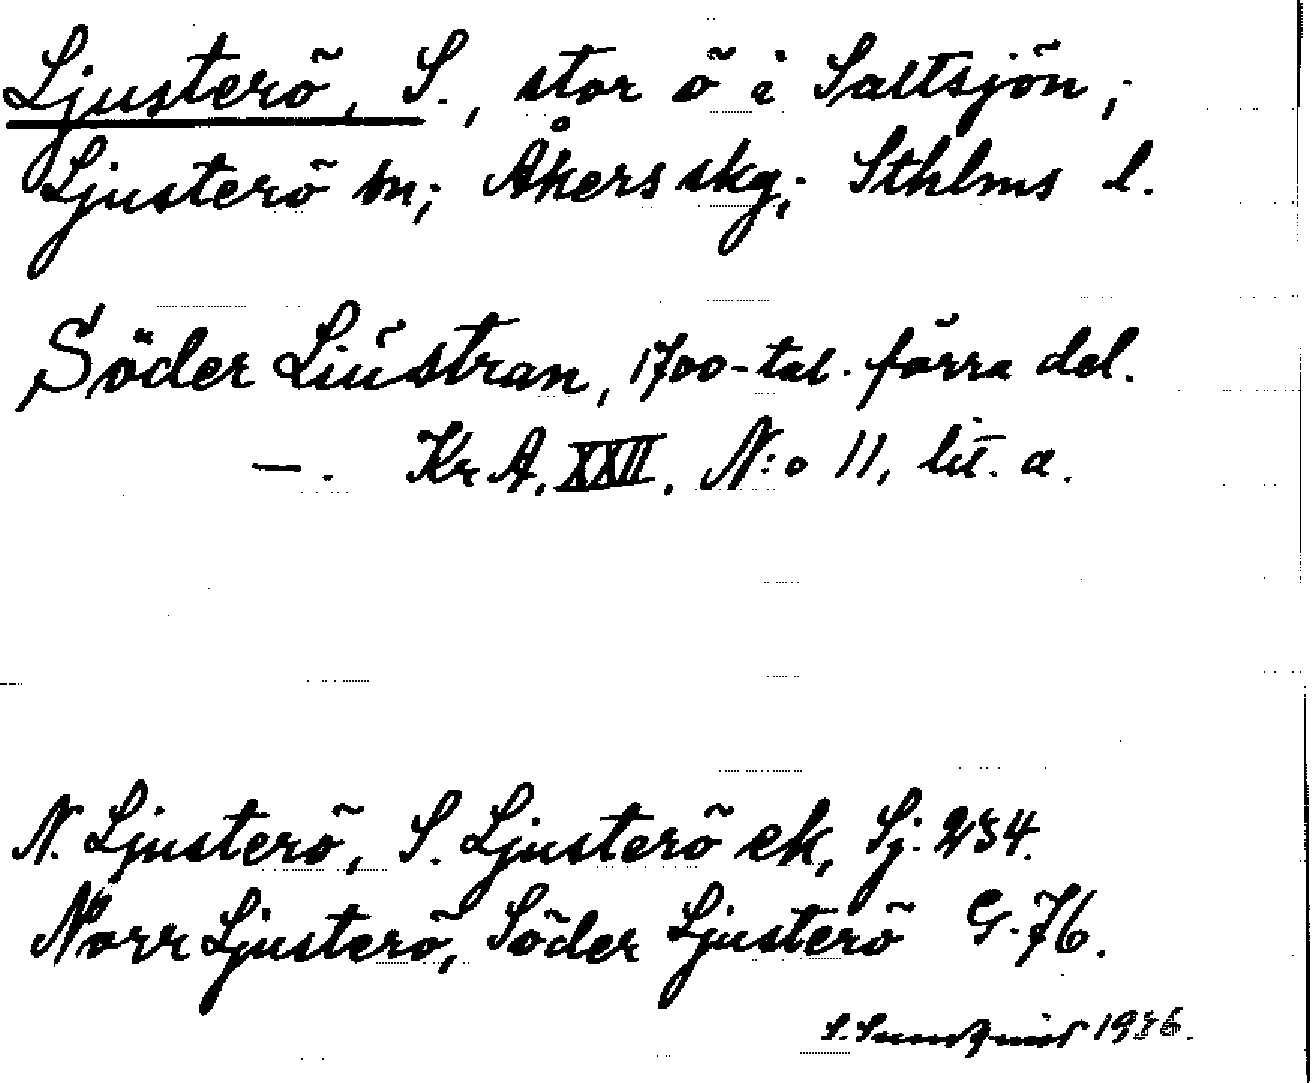 Ljusterö, S., stor ö i Saltsjön;
Ljusterö sn; Åkers skg; Sthlms l.
Söder Liústran, 1700-tal. förra del.
—. Kr A, XXII, N:o 11, lit. a.
N. Ljusterö, S. Ljusterö ek, Sj. 234.
Norr Ljusterö, Söder Ljusterö G. 76.
S. Sundqvist 1936.